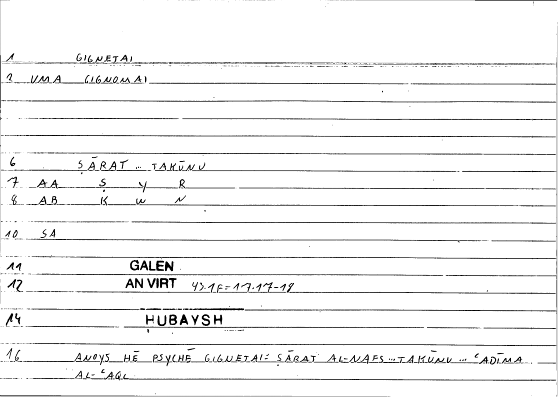 1 GIGNETAI
2 VMA GIGNOMAI
6 ṢĀRAT … TAKŪNU
7 AA Ṣ Y R
8 AB K W N
10 SA
11 GALEN
12 AN VIRT 43.1f=17.17-18
14 HUBAYSH
16 ANOYS HĒ PSYCHĒ GIGNETAI= ṢĀRAT AL-NAFS … TAKŪNU … ᶜADĪMA
AL-ᶜAQL